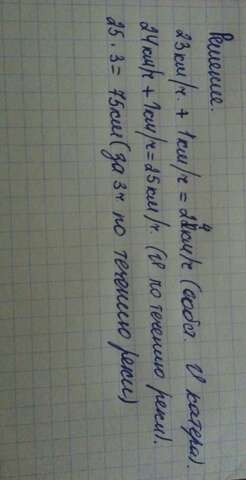 Решение.
23км/ч. + 1км/ч = 24км/ч (собс. V катера).
24км/ч + 1км/ч = 25км/ч. (V по течению реки).
25 · 3 = 75км (за 3ч по течению реки)